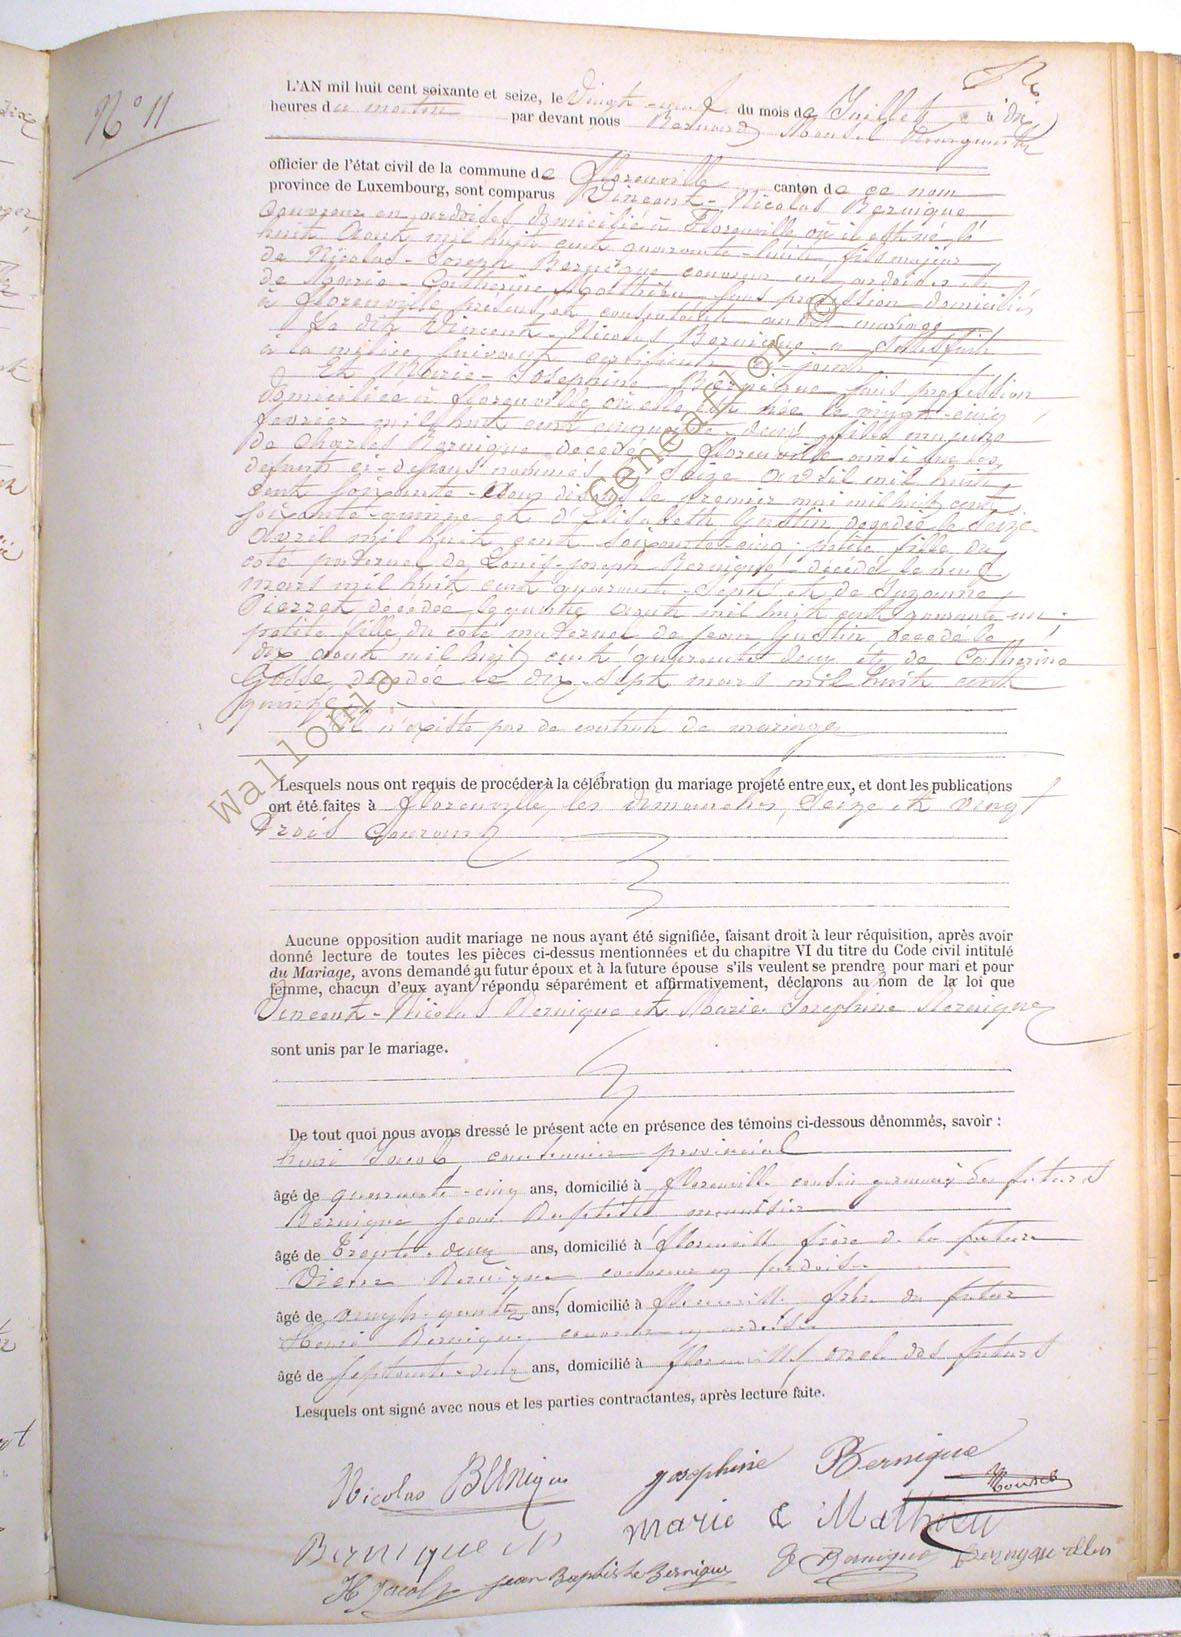 N° 11
L'AN mil huit cent soixante et seize, le Vingt-neuf du mois de Juillet à dix
heures du matin par devant nous Bernard Mousel Bourgmestre
officier de l'état civil de la commune de Florenville canton de ce nom
province de Luxembourg, sont comparus Vincent-Nicolas Bernique
couvreur en ardoises, domicilié à Florenville où il est né le
huit Aout mil huit cent quarante-huit fils majeur
de Nicolas-Joseph Bernique couvreur en ardoises et
de Marie-Catherine Mathieu sans profession domiciliés
à Florenville présents et consentant au dit mariage
Le dit Vincent-Nicolas Bernique a satisfait
à la milice suivant certificat ci-joint
Et Marie-Josephine Bernique sans profession
domiciliée à Florenville où elle est née le vingt-cinq
février mil huit cent cinquante-deux, fille majeure
de Charles Bernique décédé à Florenville ainsi que les
défunts ci-dessous nommés, seize avril mil huit
cent soixante-deux le premier mai mil huit cent
soixante-quinze et d'Elisabeth Gustin décédée le seize
Avril mil huit cent soixante-cinq; petite fille du
coté paternel de Louis-Joseph Bernique décédé le neuf
mars mil huit cent quarante-sept et de Suzanne
Pierret décédée le quinze Aout mil huit cent quarante-un;
petite fille du côté maternel de Jean Gustin décédé le
dix Aout mil huit cent quarante deux et de Catherine
Gosse, décédée le dix-sept mars mil huit cent
quinze.
Il n'existe pas de contrat de mariage
Lesquels nous ont requis de procéder à la célébration du mariage projeté entre eux, et dont les publications
ont été faites à Florenville, les dimanches, seize et vingt
trois courant
Aucune opposition audit mariage ne nous ayant été signifiée, faisant droit à leur réquisition, après avoir
donné lecture de toutes les pièces ci-dessus mentionnées et du chapitre VI du titre du Code civil intitulé
du Mariage, avons demandé au futur époux et à la future épouse s'ils veulent se prendre pour mari et pour
femme, chacun d'eux ayant répondu séparément et affirmativement, déclarons au nom de la loi que
Vincent-Nicolas Bernique et Marie Josephine Bernique
sont unis par le mariage.
De tout quoi nous avons dressé le présent acte en présence des témoins ci-dessous dénommés, savoir :
henri Jacob, cantonnier provincial
âgé de quarante-cinq ans, domicilié à Florenville cousin germain des futurs
Bernique Jean Baptiste menuisier
âgé de Trente-deux ans, domicilié à Florenville frère de la future
Pierre Bernique couvreur en ardoises
âgé de vingt-quatre ans, domicilié à Florenville frère du futur
Henri Bernique, couvreur en ardoises
âgé de septante-deux ans, domicilié à Florenville, oncle des futurs
Lesquels ont signé avec nous et les parties contractantes, après lecture faite.
Nicolas Bernique josephine Bernique
Mousel
Bernique N marie C Mathieu
H Jacob jean Baptiste Bernique P Bernique Bernique
wallonia Geneaflor ©